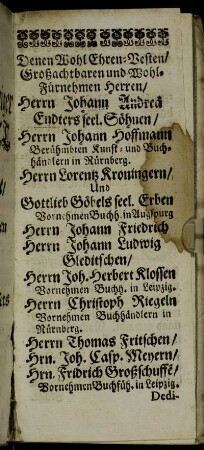 Denen Wohl Ehren-Vesten/
Großachtbaren und Wohl-
Fürnehmen Herren/
Herrn Johann Andreå
Endters seel. Söhnen/
Herrn Johann Hoffmann
Berühmbten Kunst- und Buch-
händlern in Nürnberg.
Herrn Lorentz Kroningern/
Und
Gottlieb Göbels seel. Erben
Vornehmen Buchh. in Augspurg
Herrn Johann Friedrich
Herrn Johann Ludwig
Gleditschen/
Herrn Joh. Herbert Klossen
Vornehmen Buchh. in Leipzig.
Herrn Christoph Riegeln
Vornehmen Buchhändlern in
Nürnberg.
Herrn Thomas Fritschen/
Hrn. Joh. Casp. Meyern/
Hrn. Fridrich Großschuff/
Vornehmen Buchfüh. in Leipzig.
Dedi-